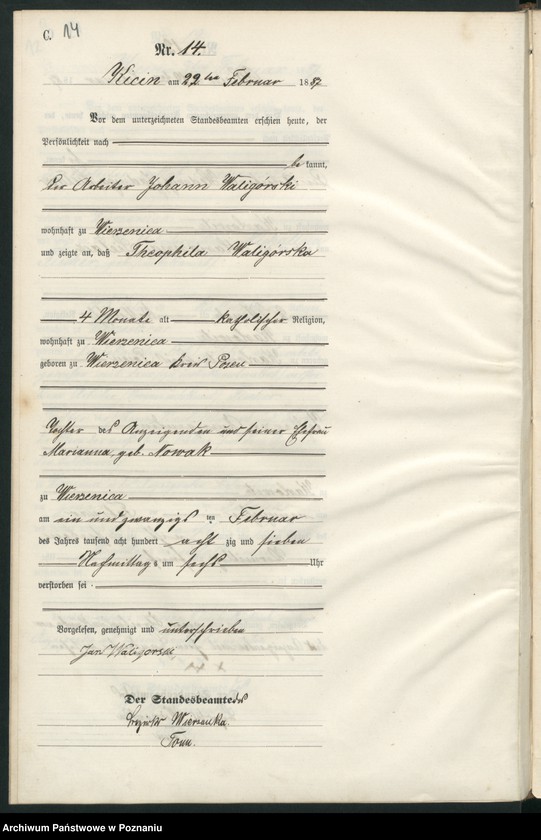 C. 14
Nr. 14.
Kicin am 22ten Februar 1887
Vor dem unterzeichneten Standesbeamten erschien heute, der
Persönlichkeit nach
bekannt,
der Arbeiter Johann Waligórski
wohnhaft zu Wierzenica
und zeigte an, daß Theophila Waligórska
4 Monate alt katholischer Religion,
wohnhaft zu Wierzenica
geboren zu Wierzenica Kreis Posen
Tochter des Anzeigenden und seiner Ehefrau
Marianna, geb. Nowak
zu Wierzenica
am ein und zwanzigs ten Februar
des Jahres tausend acht hundert acht zig und sieben
Nachmittags um sechs Uhr
verstorben sei
Vorgelesen, genehmigt und unterschrieben
Jan Waligorski
Der Standesbeamte des
Bezirks Wierzenka.
Archiwum Państwowe w Poznaniu